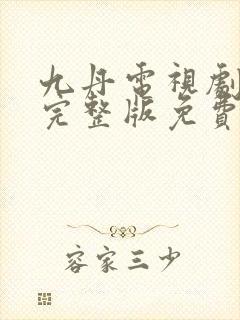 九丹電視劇
完整版免費
容家三少